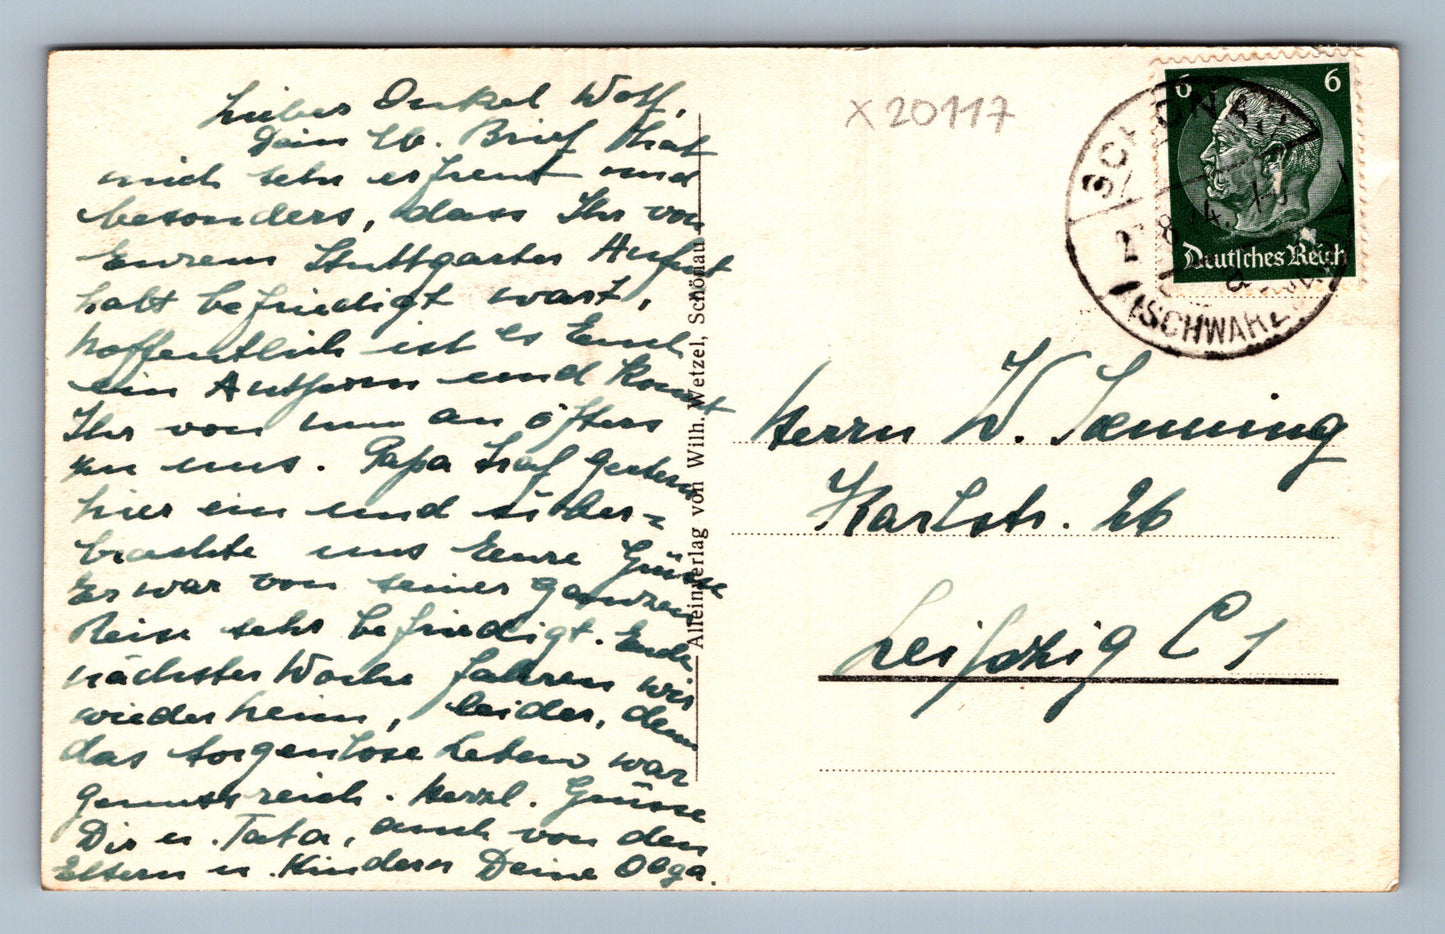 Lieber Onkel Wolf,
Dein lb. Brief hat
mich sehr erfreut und
besonders, dass Ihr von
Eurem Stuttgarter Aufent
halt befriedigt wart,
hoffentlich ist es Euch
ein Ansporn und kommt
Ihr von nun an öfters
zu uns. Papa traf gestern
hier ein und über-
brachte uns Eure Grüsse
Er war von seiner ganzen
Reise sehr befriedigt. Ende
nächster Woche fahren wir
wieder heim, leider, denn
das sorgenlose Leben war
genussreich. Herzl. Grüsse
Dir u. Tata, auch von den
Eltern u. Kindern Deine Olga.
Alleinverlag von Wilh. Wetzel, Schönau
X 20117
6 6
Deutsches Reich
SCHÖNAU
(SCHWARZW
Herrn W. Jaenning
Karlstr. 26
Leipzig C 1